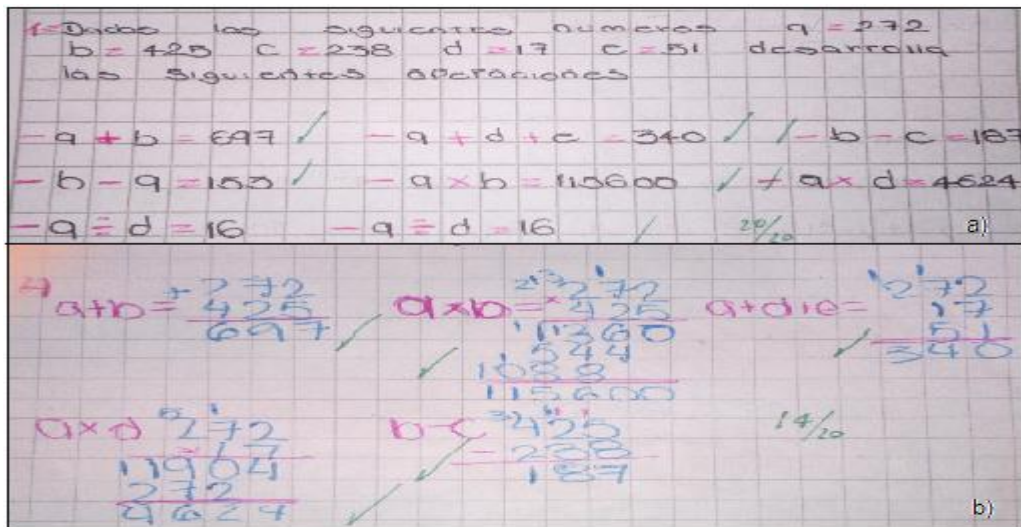 1=Dados los siguientes numeros a = 272
b = 425 c = 238 d = 17 e = 51 desarrolla
las siguientes operaciones
- a + b = 697 - a + d + e = 340 - b - c = 187
- b - a = 153 - a x b = 115600 - a x d = 4624
- a ÷ d = 16 - a ÷ d = 16 20/20
a)
a+b= + 272
425
697
axb= x 272
425
1360
544
1088
115600
a+d+e= 272
17
51
340
axd 272
17
1904
272
4624
b-c 425
238
187
14/20
b)